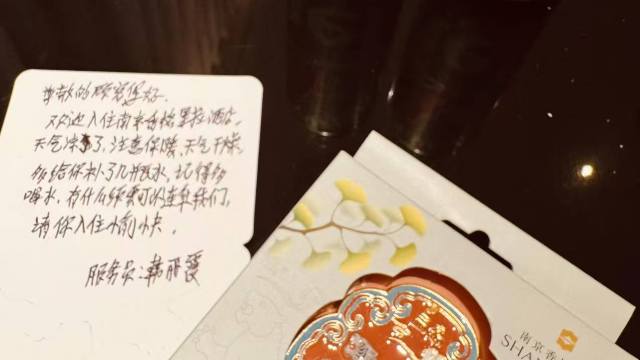 尊敬的顾客您好.
欢迎入住南京香格里拉酒店,
天气凉了,注意保暖,天气干燥,
多给你补了几瓶水,记得多
喝水,有什么需要可以联系我们,
请你入住愉快.
服务员:韩
南京香
SHA